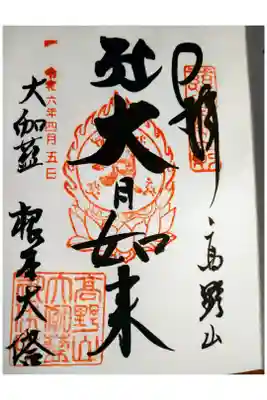 奉拝 高野山
大日如来
令和六年四月五日
大伽藍 根本大塔
高野山
大伽藍